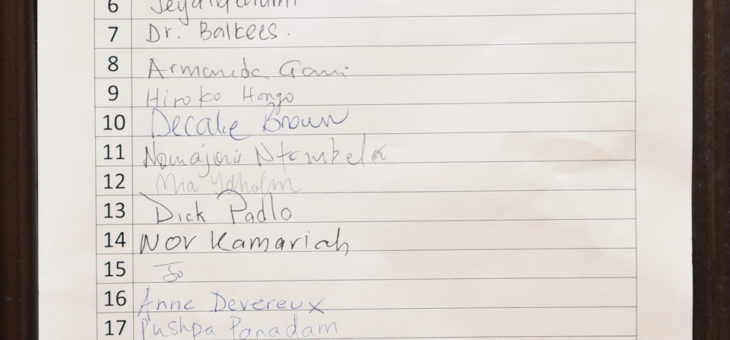 6
7 Dr. Balkees.
8 Armanda Gani
9 Hiroko Hongo
10 Decale Brown
11 Ntombela
12 Mia
13 Dick Padlo
14 Nor Kamariah
15 Jo
16 Anne Devereux
17 Pushpa Panadam